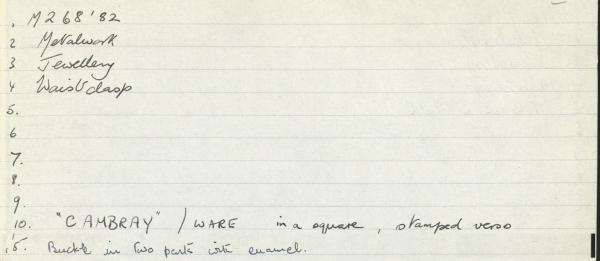 . M268'82
2 Metalwork
3 Jewellery
4 Waist clasp
5.
6
7.
8.
9.
10. "CAMBRAY" / WARE in a square, stamped verso
15. Buckle in two parts with enamel.